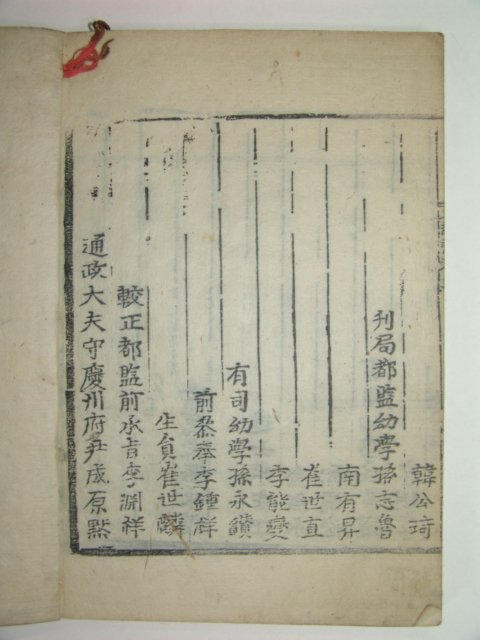 韓公琦
刊局都監幼學孫志魯
南有昇
崔世直
李能燮
有司幼學孫永鑽
前叅奉李鍾祥
生員崔世麟
較正都監前承旨李淵祥
通政大夫守慶州府尹成原黙